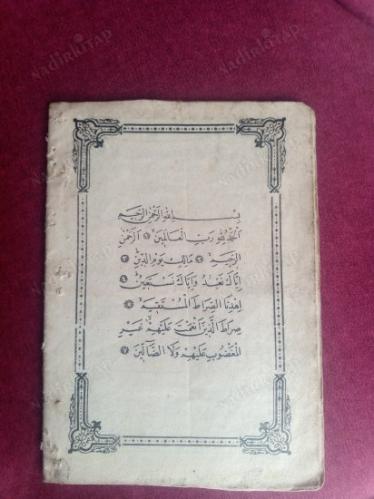 بِسْمِ اللهِ الرَّحْمٰنِ الرَّحِيمِ
اَلْحَمْدُ لِلّٰهِ رَبِّ الْعَالَمِينَ ۝ اَلرَّحْمٰنِ
الرَّحِيمِ ۝ مَالِكِ يَوْمِ الدِّينِ ۝
اِيَّاكَ نَعْبُدُ وَاِيَّاكَ نَسْتَعِينُ ۝
اِهْدِنَا الصِّرَاطَ الْمُسْتَقِيمَ ۝
صِرَاطَ الَّذِينَ اَنْعَمْتَ عَلَيْهِمْ غَيْرِ
الْمَغْضُوبِ عَلَيْهِمْ وَلَا الضَّالِّينَ ۝
NadirKiTAP